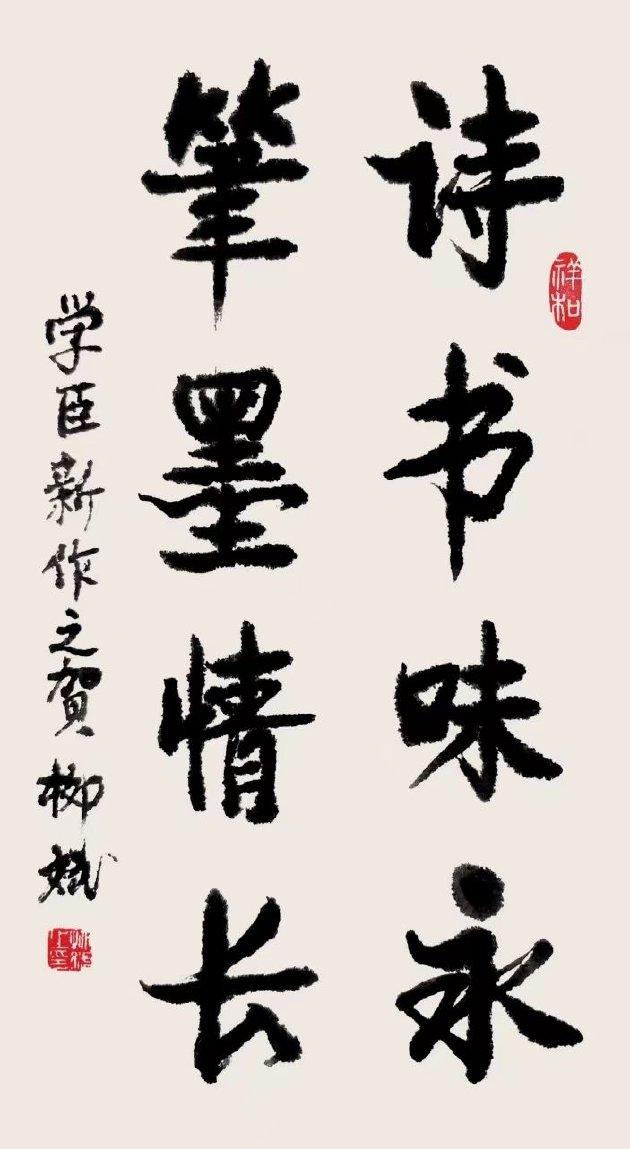 诗书味永
筆墨情长
学臣新作之贺 柳斌
祥和